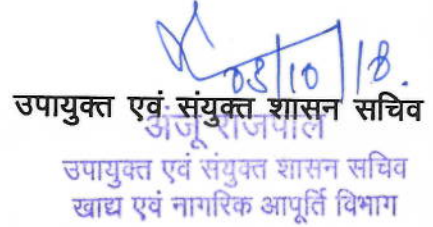 03/10/18.
उपायुक्त एवं संयुक्त शासन सचिव
अंजू राजपाल
उपायुक्त एवं संयुक्त शासन सचिव
खाद्य एवं नागरिक आपूर्ति विभाग